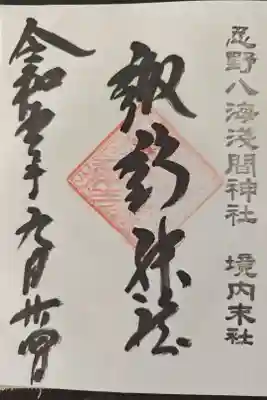 忍野八海淺間神社　境内末社
諏訪神社
令和 年九月廿四日